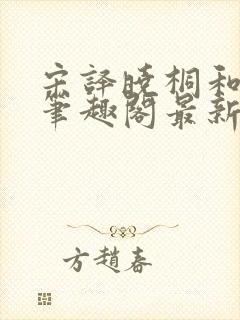 宋译晓桐和
笔趣阁最新
方趙春